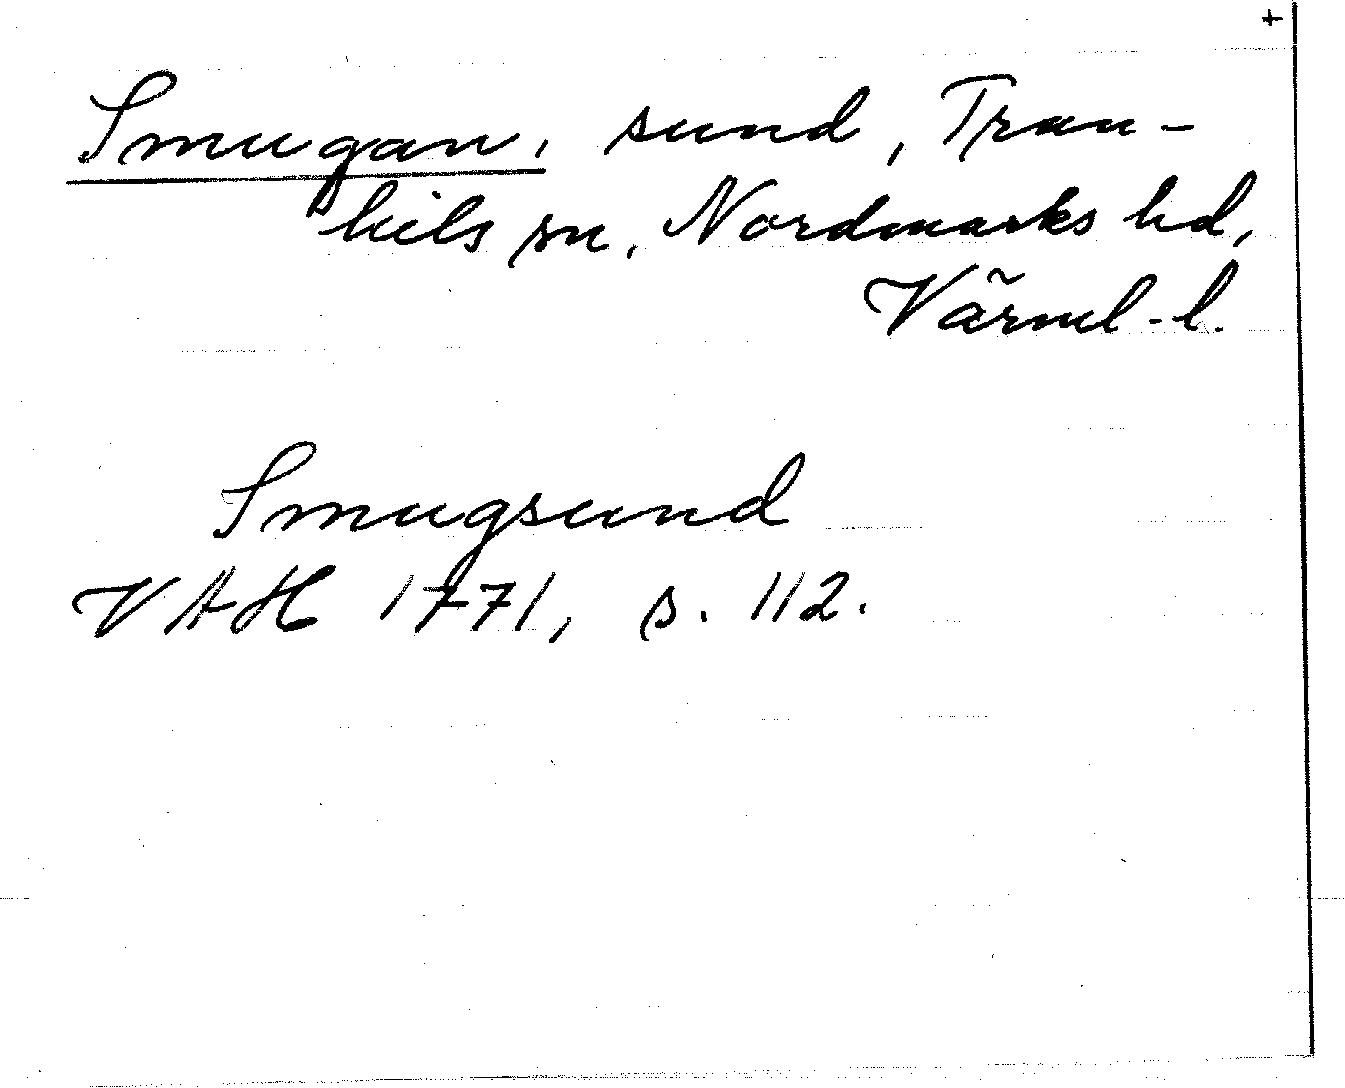 +
Smugan, sund, Tran-
kils sn, Nordmarks hd,
Värml. l.
Smugsund
VAH 1771, s. 112.